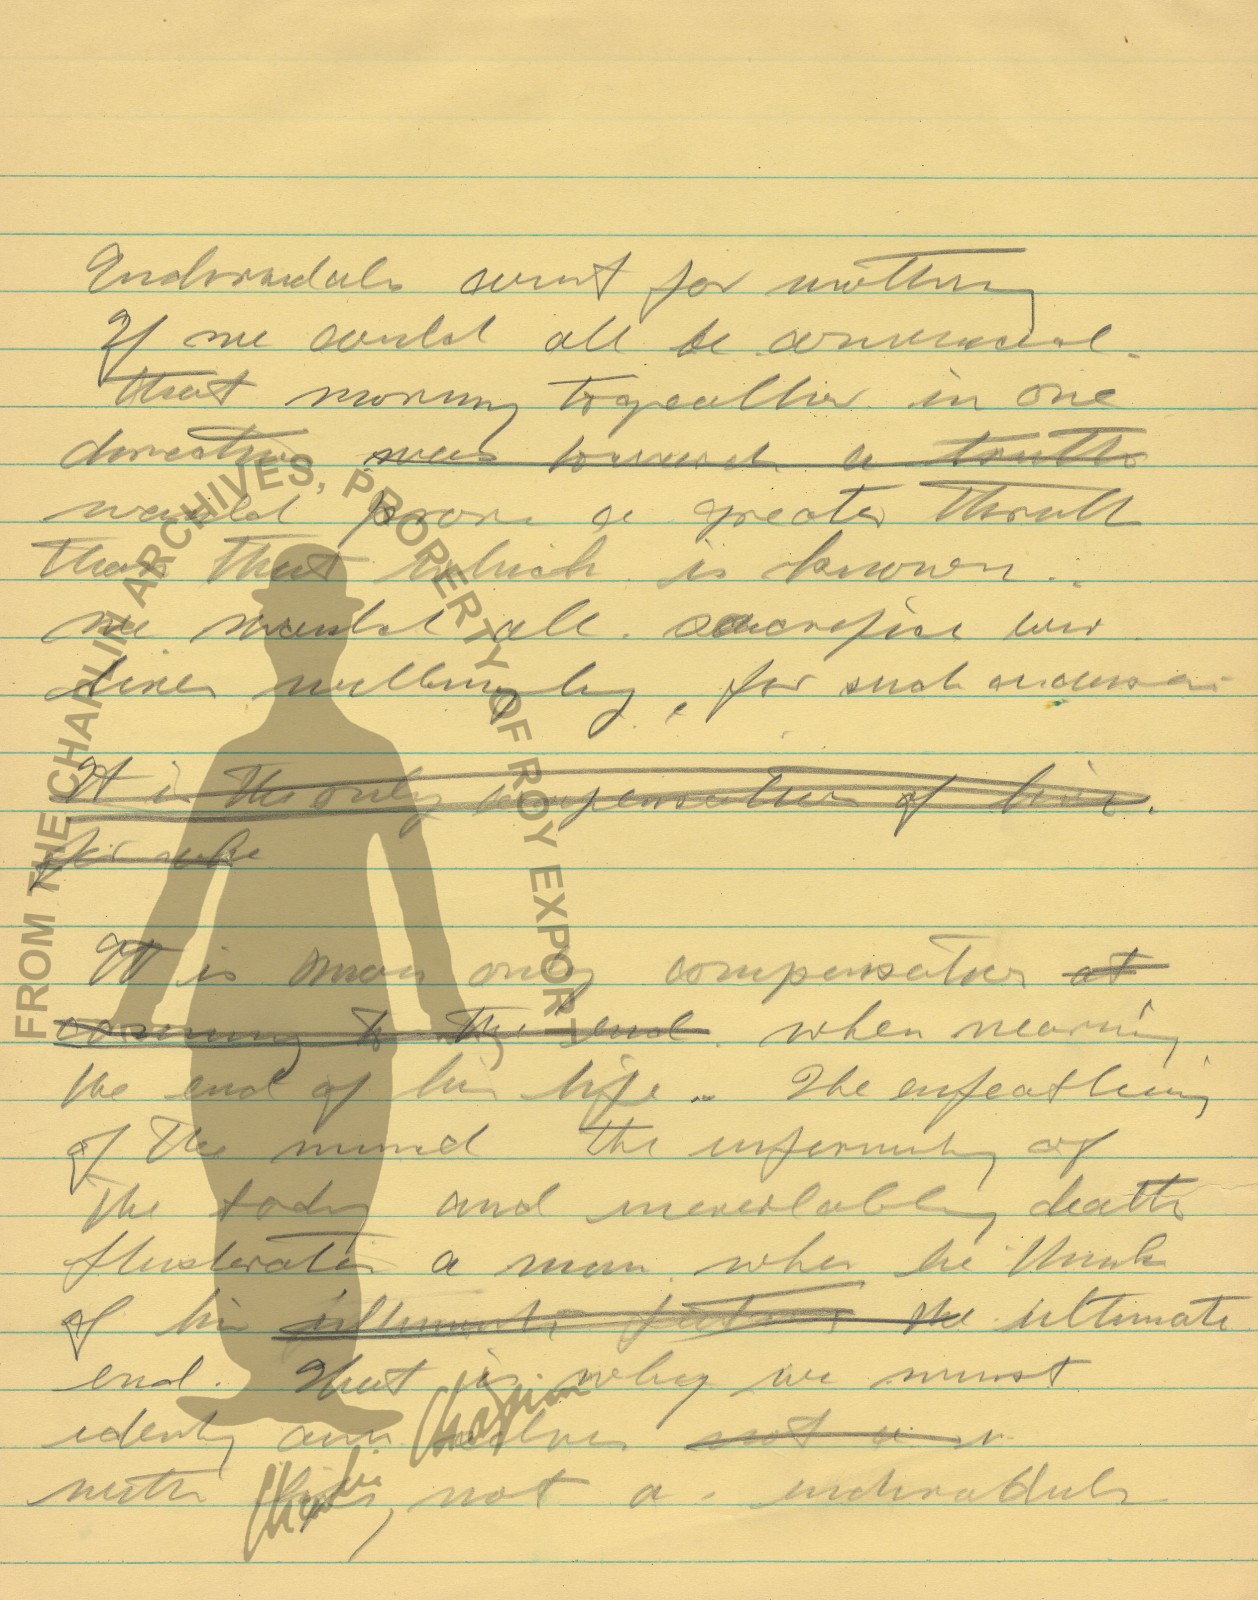 Individuals count for nothing
If we could all be convinced
that moving together in one
direction was towards a truth
would prove a greater thrill
than that which is known..
we would all sacrifice our
lives willingly, for such
It is the only compensation of
for the
It is mans only compensation at
coming to the end when nearing
the end of his life.. The enfeebling
of the mind the infirmity of
the body and inevitably death
frustrates a man when he think
of his ultimate future the ultimate
end. That is why we must
identy our selves not
with life, not a individuals
FROM THE CHAPLIN ARCHIVES, PROPERTY OF ROY EXPORT
Charlie Chaplin